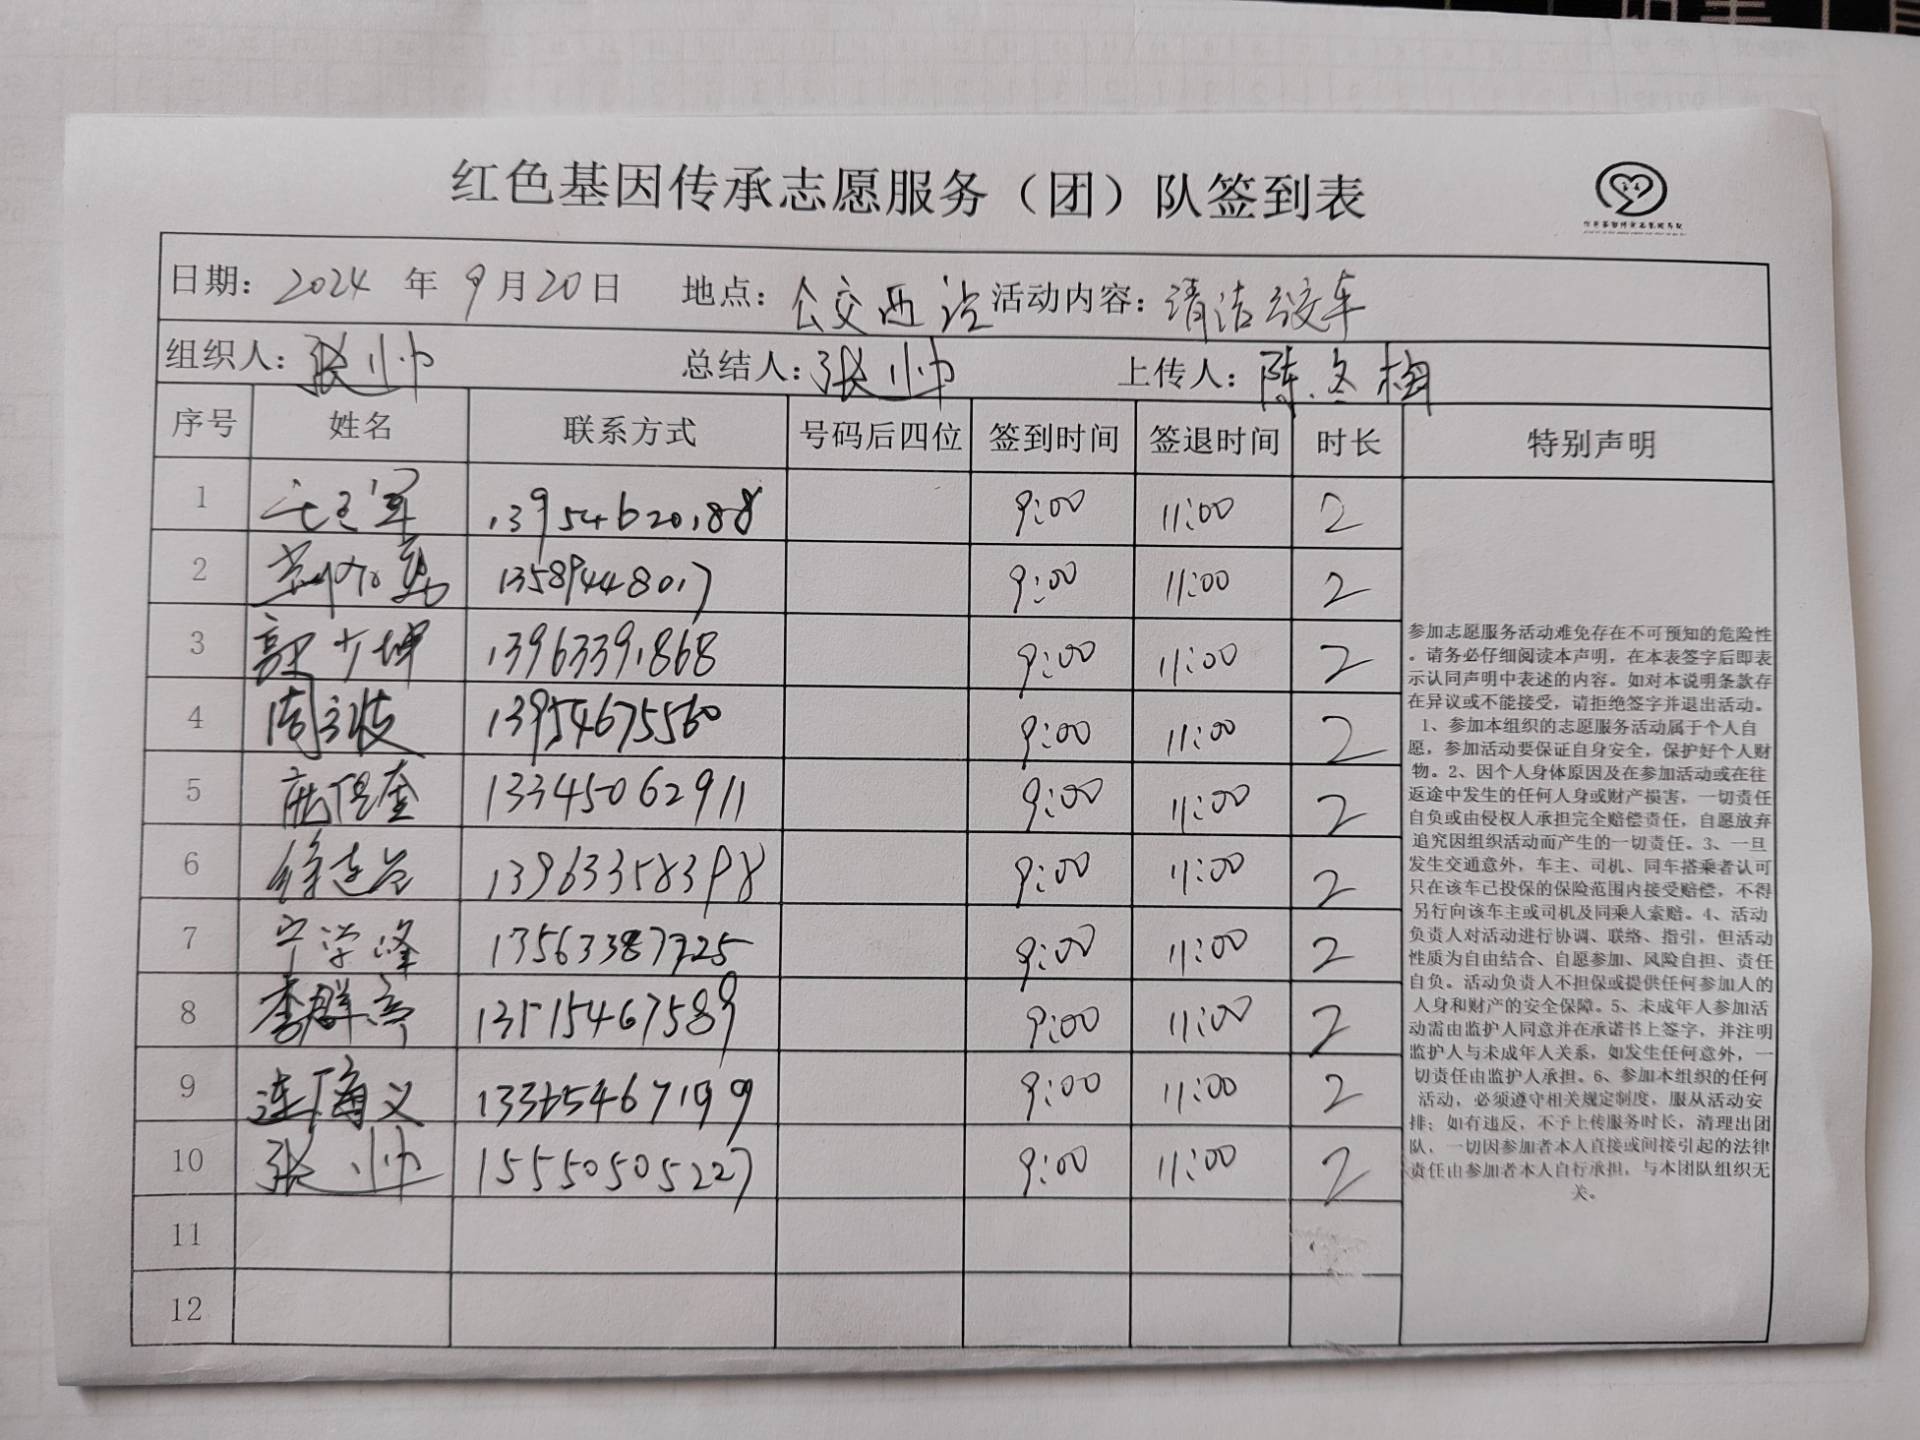 红色基因传承志愿服务（团）队签到表
日期：2024 年 9月20日 地点：公交西站 活动内容：清洁公交车
组织人：张小帅 总结人：张小帅 上传人：陈冬梅
序号 姓名 联系方式 号码后四位 签到时间 签退时间 时长 特别声明
1 13954620188 9:00 11:00 2
2 13589448017 9:00 11:00 2
3 郭少坤 13963391868 9:00 11:00 2
4 周立波 13954675560 9:00 11:00 2
5 13345062911 9:00 11:00 2
6 13963358398 9:00 11:00 2
7 宁学峰 13563387325 9:00 11:00 2
8 李群亭 13515467589 9:00 11:00 2
9 连海义 13365467199 9:00 11:00 2
10 张小帅 15550505227 9:00 11:00 2
11
12
参加志愿服务活动难免存在不可预知的危险性
。请务必仔细阅读本声明，在本表签字后即表
示认同声明中表述的内容。如对本说明条款存
在异议或不能接受，请拒绝签字并退出活动。
1、参加本组织的志愿服务活动属于个人自
愿，参加活动要保证自身安全，保护好个人财
物。2、因个人身体原因及在参加活动或在往
返途中发生的任何人身或财产损害，一切责任
自负或由侵权人承担完全赔偿责任，自愿放弃
追究因组织活动而产生的一切责任。3、一旦
发生交通意外，车主、司机、同车搭乘者认可
只在该车已投保的保险范围内接受赔偿，不得
另行向该车主或司机及同乘人索赔。4、活动
负责人对活动进行协调、联络、指引，但活动
性质为自由结合、自愿参加、风险自担、责任
自负。活动负责人不担保或提供任何参加人的
人身和财产的安全保障。5、未成年人参加活
动需由监护人同意并在承诺书上签字，并注明
监护人与未成年人关系，如发生任何意外，一
切责任由监护人承担。6、参加本组织的任何
活动，必须遵守相关规定制度，服从活动安
排；如有违反，不予上传服务时长，清理出团
队，一切因参加者本人直接或间接引起的法律
责任由参加者本人自行承担，与本团队组织无
关。